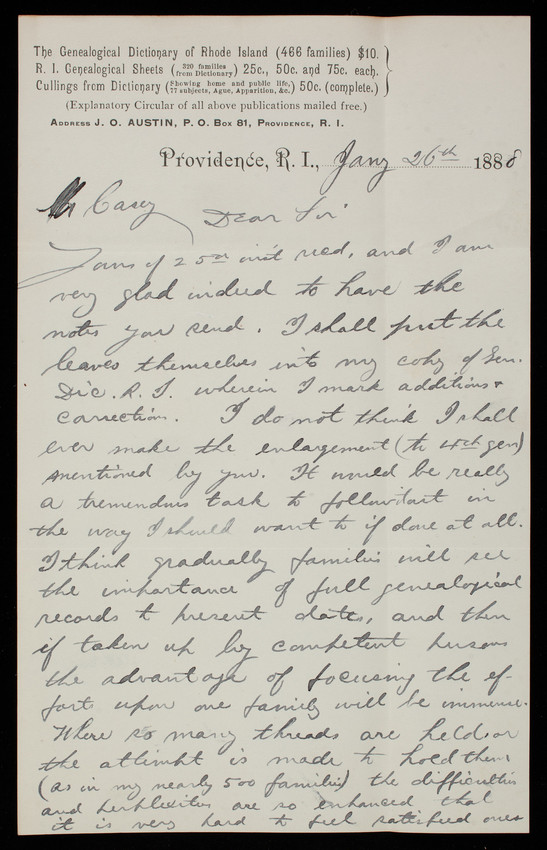 The Genealogical Dictionary of Rhode Island (466 families) $10.
R. I. Genealogical Sheets (320 families from Dictionary) 25c., 50c. and 75c. each.
Cullings from Dictionary (Showing home and public life, 77 subjects, Ague, Apparition, &c.) 50c. (complete.)
(Explanatory Circular of all above publications mailed free.)
ADDRESS J. O. AUSTIN, P. O. BOX 81, PROVIDENCE, R. I.
Providence, R. I., Jany 26th 1888
Mr Casey
Dear Sir
Yours of 25th inst recd, and I am
very glad indeed to have the
notes you send. I shall put the
leaves themselves into my copy of Gen.
Dic. R. I. wherein I mark additions &
corrections. I do not think I shall
ever make the enlargement (to 4th gen)
mentioned by you. It would be really
a tremendous task to follow it out in
the way I should want to if done at all.
I think gradually families will see
the importance of full genealogical
records to present dates, and then
if taken up by competent persons
the advantage of focusing the ef-
forts upon one family will be immense.
Where so many threads are held or
the attempt is made to hold them
(as in my nearly 500 families) the difficulties
and perplexities are so enhanced that
it is very hard to feel satisfied ones